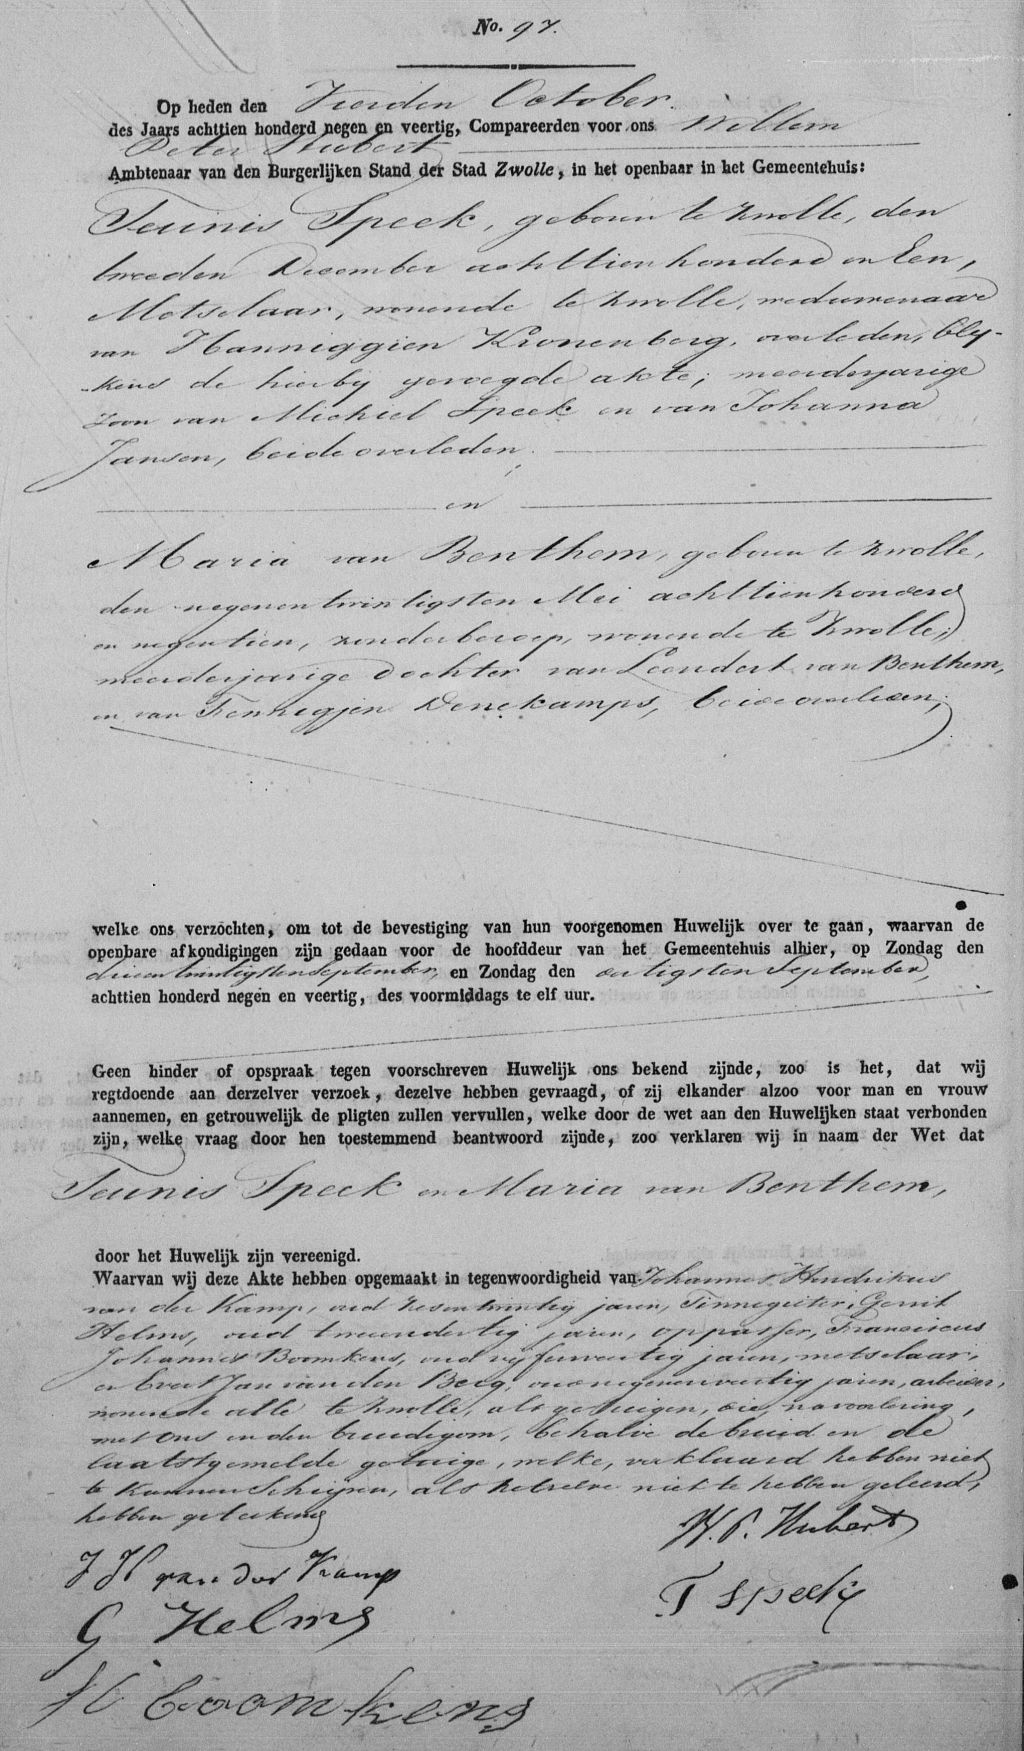 No. 97.
Op heden den Vierden October
des Jaars achttien honderd negen en veertig, Compareerden voor ons Willem
Peter Hubert
Ambtenaar van den Burgerlijken Stand der Stad Zwolle, in het openbaar in het Gemeentehuis:
Teunis Speek, geboren te Zwolle, den
tweeden December achttienhonderd en Een,
Metselaar, wonende te Zwolle, weduwenaar
van Hanniggien Kronenberg, overleden, bly-
kens de hierby gevoegde akte; meerderjarige
Zoon van Michiel Speek en van Johanna
Jansen, beide overleden.
en
Maria van Benthem, geboren te Zwolle,
den negenentwintigsten Mei achttienhonderd
en negentien, zonder beroep, wonende te Zwolle;
meerderjarige dochter van Leendert van Benthem,
en van Fennigjen Denekamps, beide overleden;
welke ons verzochten, om tot de bevestiging van hun voorgenomen Huwelijk over te gaan, waarvan de
openbare afkondigingen zijn gedaan voor de hoofddeur van het Gemeentehuis alhier, op Zondag den
drieentwintigsten September, en Zondag den dertigsten September,
achttien honderd negen en veertig, des voormiddags te elf uur.
Geen hinder of opspraak tegen voorschreven Huwelijk ons bekend zijnde, zoo is het, dat wij
regtdoende aan derzelver verzoek, dezelve hebben gevraagd, of zij elkander alzoo voor man en vrouw
aannemen, en getrouwelijk de pligten zullen vervullen, welke door de wet aan den Huwelijken staat verbonden
zijn, welke vraag door hen toestemmend beantwoord zijnde, zoo verklaren wij in naam der Wet dat
Teunis Speek en Maria van Benthem,
door het Huwelijk zijn vereenigd.
Waarvan wij deze Akte hebben opgemaakt in tegenwoordigheid van Johannes Hendrikus
van der Kamp, oud zesentwintig jaren, Tinnegieter, Gerrit
Helms, oud tweendertig jaren, oppasser, Franciscus
Johannes Boomkens, oud vyfenveertig jaren, metselaar,
en Evert Jan van den Berg, oud negenenveertig jaren, arbeider,
wonende alle te Zwolle, als getuigen, die, na voorlezing,
met Ons en den bruidegom, behalve de bruid en de
laatstgemelde getuige, welke, verklaard hebben niet
te kunnen Schrijven, als hetzelve niet te hebben geleerd,
hebben geteekend
W. P. Hubert
J H van der Kamp
T speek
G Helms
Boomkens